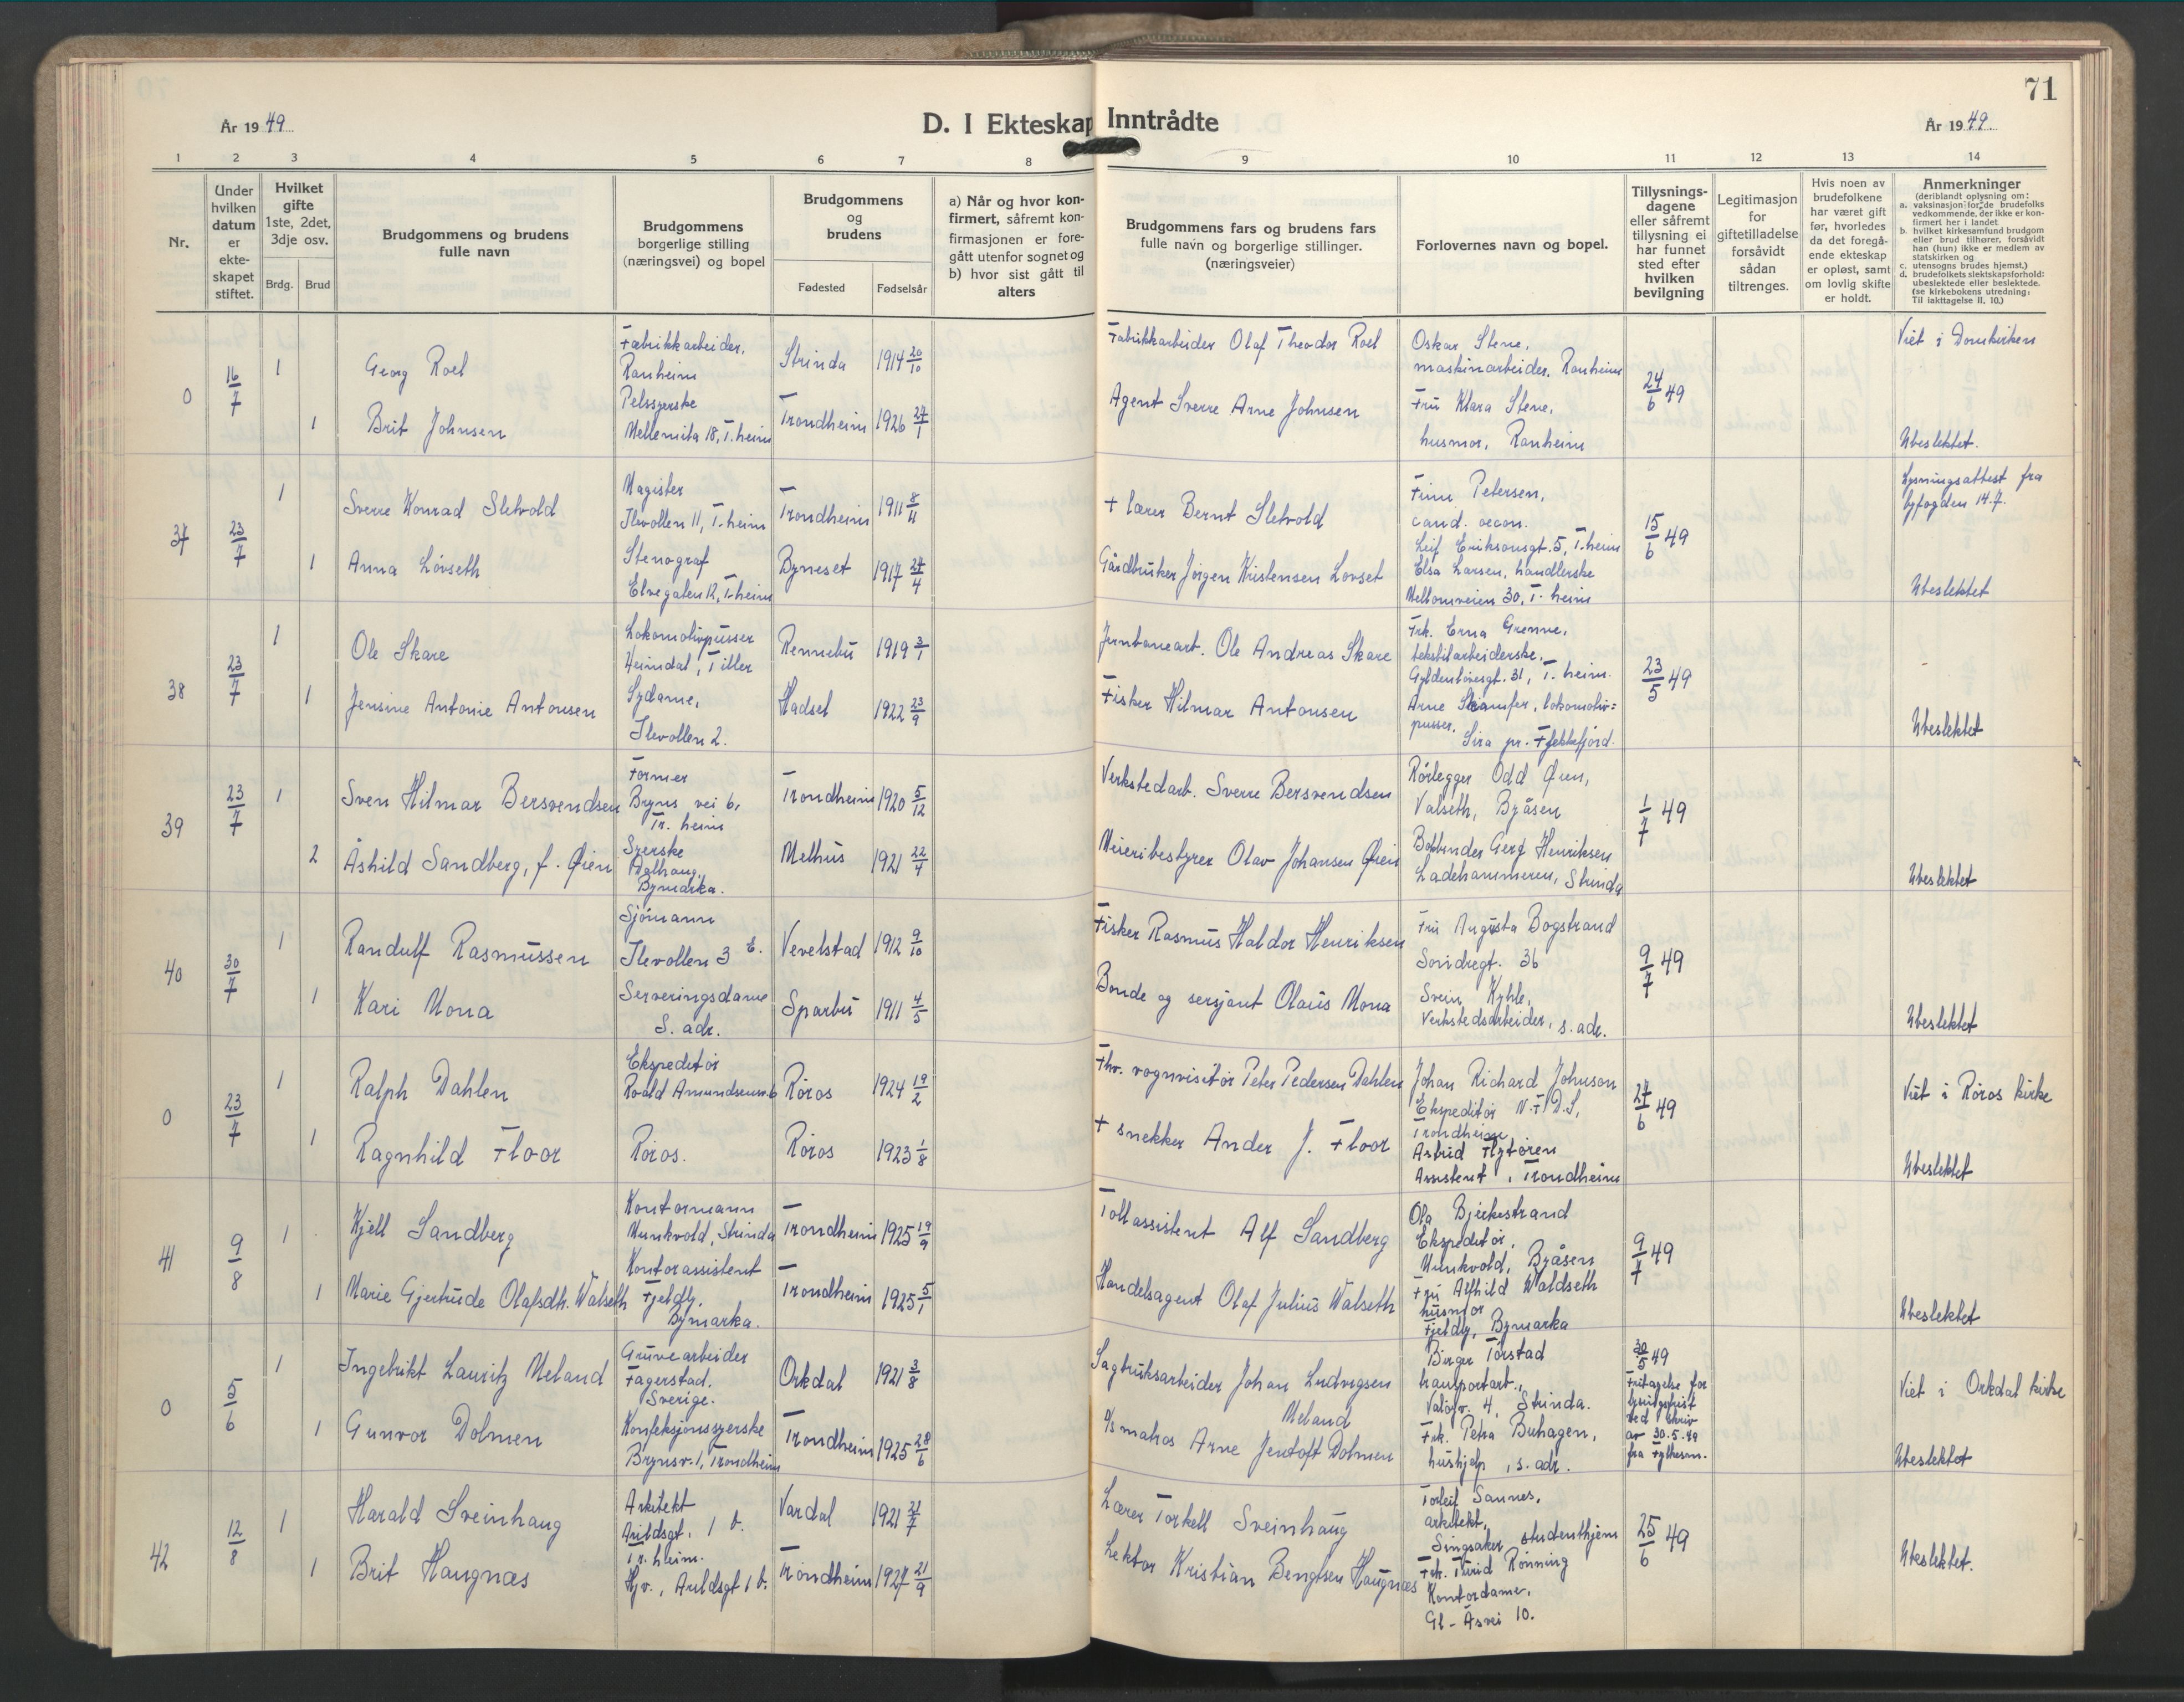 71
År 1949.
D. I Ekteskap Inntrådte
År 1949.
1 2 3 4 5 6 7 8 9 10 11 12 13 14
Nr.
Under hvilken datum er ekte- skapet stiftet.
Hvilket gifte 1ste, 2det, 3dje osv.
Brdg. Brud
Brudgommens og brudens fulle navn
Brudgommens borgerlige stilling (næringsvei) og bopel
Brudgommens og brudens
Fødested Fødselsår
a) Når og hvor kon- firmert, såfremt kon- firmasjonen er fore- gått utenfor sognet og b) hvor sist gått til alters
Brudgommens fars og brudens fars fulle navn og borgerlige stillinger. (næringsveier)
Forlovernes navn og bopel.
Tillysnings- dagene eller såfremt tillysning ei har funnet sted efter hvilken bevilgning
Legitimasjon for giftetilladelse forsåvidt sådan tiltrenges.
Hvis noen av brudefolkene har været gift før, hvorledes da det foregå- ende ekteskap er opløst, samt om lovlig skifte er holdt.
Anmerkninger
(deriblandt oplysning om:
a. vaksinasjon for de brudefolks vedkommende, der ikke er kon- firmert her i landet
b. hvilket kirkesamfund brudgom eller brud tilhører, forsåvidt han (hun) ikke er medlem av statskirken og
c. utensogns brudes hjemst.)
d. brudefolkets slektskapsforhold: ubeslektede eller beslektede.
(se kirkebokens utredning: Til iakttagelse II. 10.)
0 16/7 1 Georg Roel
Fabrikkarbeider, Ranheim
Strinda 1914 20/10
Fabrikkarbeider Olaf Theodor Roel
Oskar Stene, maskinarbeider, Ranheim
24/6 49
Viet i Domkirken
1 Brit Johnsen
Pelssyerske
Mellemila 18, T.heim
Trondheim 1926 24/1
Agent Sverre Arne Johnsen
Fru Klara Stene,
husmor, Ranheim
Ubeslektet.
37 23/7 1 Sverre Konrad Sletvold
Magister
Ilevollen 11, T.heim
Trondheim 1911 8/11
+ lærer Bernt Sletvold
Finn Petersen,
cand. oecon.
Leif Eriksonsgt. 5, T.heim
15/6 49
Lysningsattest fra
byfogden 14.7.
1 Anna Lövseth
Stenograf
Elvegaten 12, T.heim
Byneset 1917 24/4
Gårdbruker Jörgen Kristensen Lovset
Elsa Larsen, handlerske
Mellomveien 30, T.heim
Ubeslektet
38 23/7 1 Ole Skare
Lokomotivpusser
Heimdal, Tiller
Rennebu 1919 3/1
Jernbanearb. Ole Andreas Skare
Frk. Erna Grenne,
tekstilarbeiderske,
Gyldenlövesgt. 31, T.heim.
23/5 49
1 Jensine Antonie Antonsen
Sydame,
Ilevollen 2.
Hadsel 1922 23/9
Fisker Hilmar Antonsen
Arne Skamfer, lokomotiv=
pusser,
Sira pr. Flekkefjord.
Ubeslektet
39 23/7 1 Sven Hilmar Bersvendsen
Former
Bryns vei 6,
Tr. heim
Trondheim 1920 5/12
Verkstedarb. Sverre Bersvendsen
Rörlegger Odd Øien,
Valseth, Byåsen
1/7 49
2 Åshild Sandberg, f. Øien
Syerske
Dalhaug,
Bymarka.
Melhus 1921 22/4
Meieribestyrer Olav Johansen Øien
Georg Henriksen
Ladehammeren, Strinda
Ubeslektet
40 30/7 1 Randulf Rasmussen
Sjömann
Ilevollen 3 b.
Vevelstad 1912 9/10
Fisker Rasmus Haldor Henriksen
Fru Augusta Bogstrand
Sondregt. 36
9/7 49
1 Kari Mona
Serveringsdame
S. adr.
Sparbu 1911 4/5
Bonde og sersjant Olaus Mona
Svein Kyhle,
Verkstedsarbeider, s. adr.
Ubeslektet
0 23/7 1 Ralph Dahlen
Ekspeditör
Roald Amundsensv. 6
Röros 1924 19/2
Fhv. vognvisitör Peter Pedersen Dahlen
Johan Richard Johnson
Ekspeditör N.F.D.S,
Trondheim
27/6 49
Viet i Röros kirke
1 Ragnhild Floor
Röros.
Röros 1923 1/8
+ snekker Ander J. Floor
Astrid Flytören
Assistent, Trondheim
Ubeslektet
41 9/8 1 Kjell Sandberg
Kontormann
Munkvold, Strinda
Trondheim 1925 19/9
Tollassistent Alf Sandberg
Ola Bjerkestrand
Ekspeditör,
Munkvold, Byåsen
9/7 49
1 Marie Gjertrude Olafsdtr. Walseth
Kontorassistent
Fjeldly,
Bymarka.
Trondheim 1925 5/1
Handelsagent Olaf Julius Walseth
Fru Alfhild Waldseth
husmor
Fjeldly, Bymarka
Ubeslektet
0 5/6 1 Ingebrikt Lauritz Meland
Gruvearbeider
Fagerstad.
Sverige.
Orkdal 1921 3/8
Sagbruksarbeider Johan Ludvigsen
Meland
Birger Törstad
transportarb.,
4, Strinda.
30/5 49
Fritagelse for
ved skriv
av 30.5.49
fra Fylkesm.
Viet i Orkdal kirke
1 Gunvor Dolmen
Konfeksjonssyerske
Brynsv. 1, Trondheim
Trondheim 1925 28/6
matros Arne Jentoft Dolmen
Frk. Petra Buhagen,
hushjelp, s. adr.
Ubeslektet
42 12/8 1 Harald Sveinhaug
Arkitekt
Arildsgt. 1 b.
Tr. heim.
Vardal 1921 21/7
Lærer Torkell Sveinhaug
Torleif Sannes,
arkitekt,
Singsaker studenthjem
25/6 49
1 Brit Haugnæs
Hjv., Arildsgt 1 b.
Trondheim 1927 21/9
Lektor Kristian Bengtsen Haugnæs
Frk. Turid Rönning
Kontordame,
Gl-Åsvei 10.
Ubeslektet.